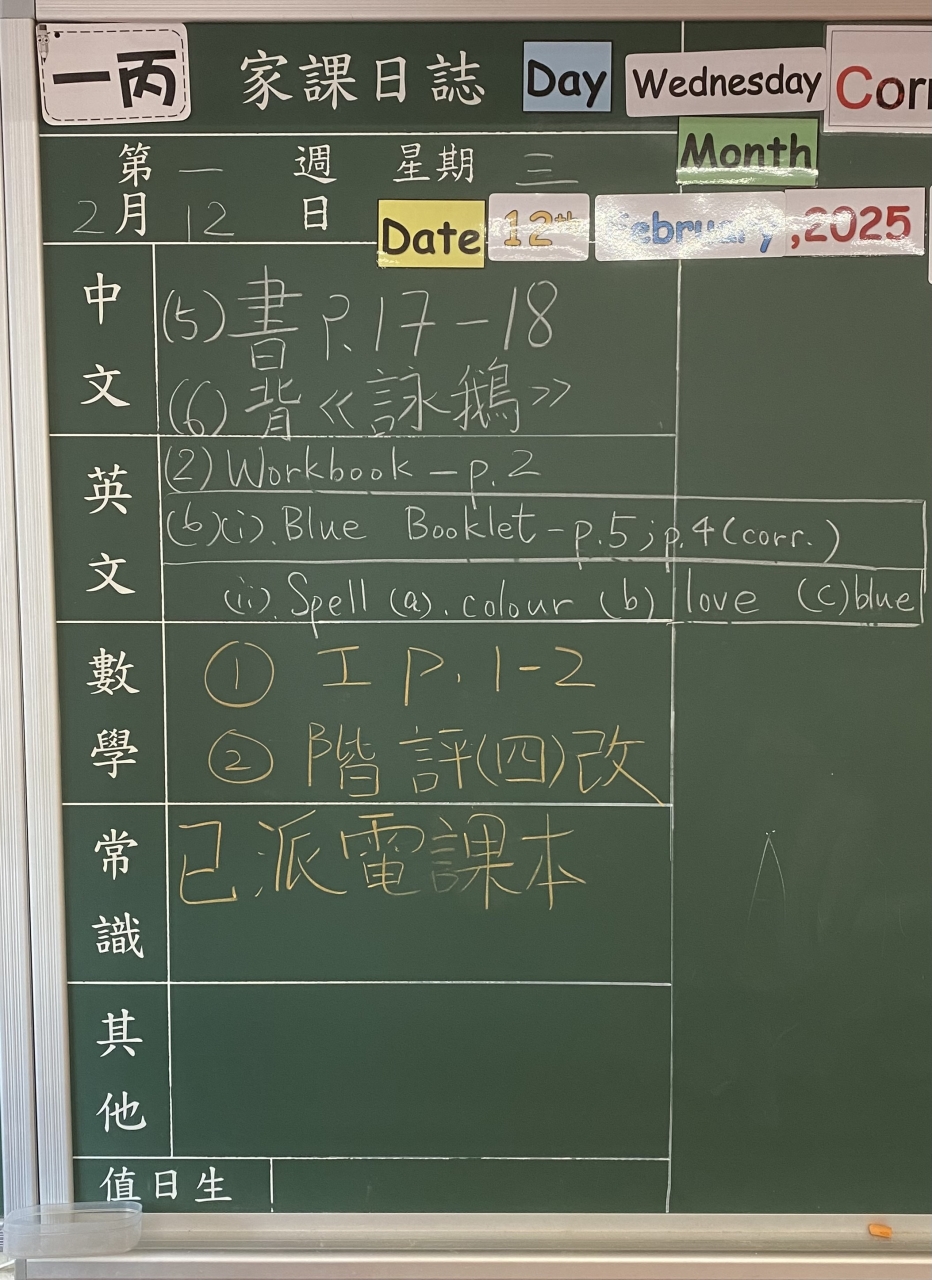 一丙 家課日誌 Day Wednesday Corr
第 一 週 星期 三 Month
2 月 12 日 Date 12th February ,2025
中文
(5) 書 P.17-18
(6) 背《詠鵝》
英文
(2) Workbook - p.2
(6)(i). Blue Booklet - p.5; p.4 (corr.)
(ii). Spell (a). colour (b) love (c) blue
數學
① 工 P. 1-2
② 階評(四)改
常識
已派電課本
其他
值日生